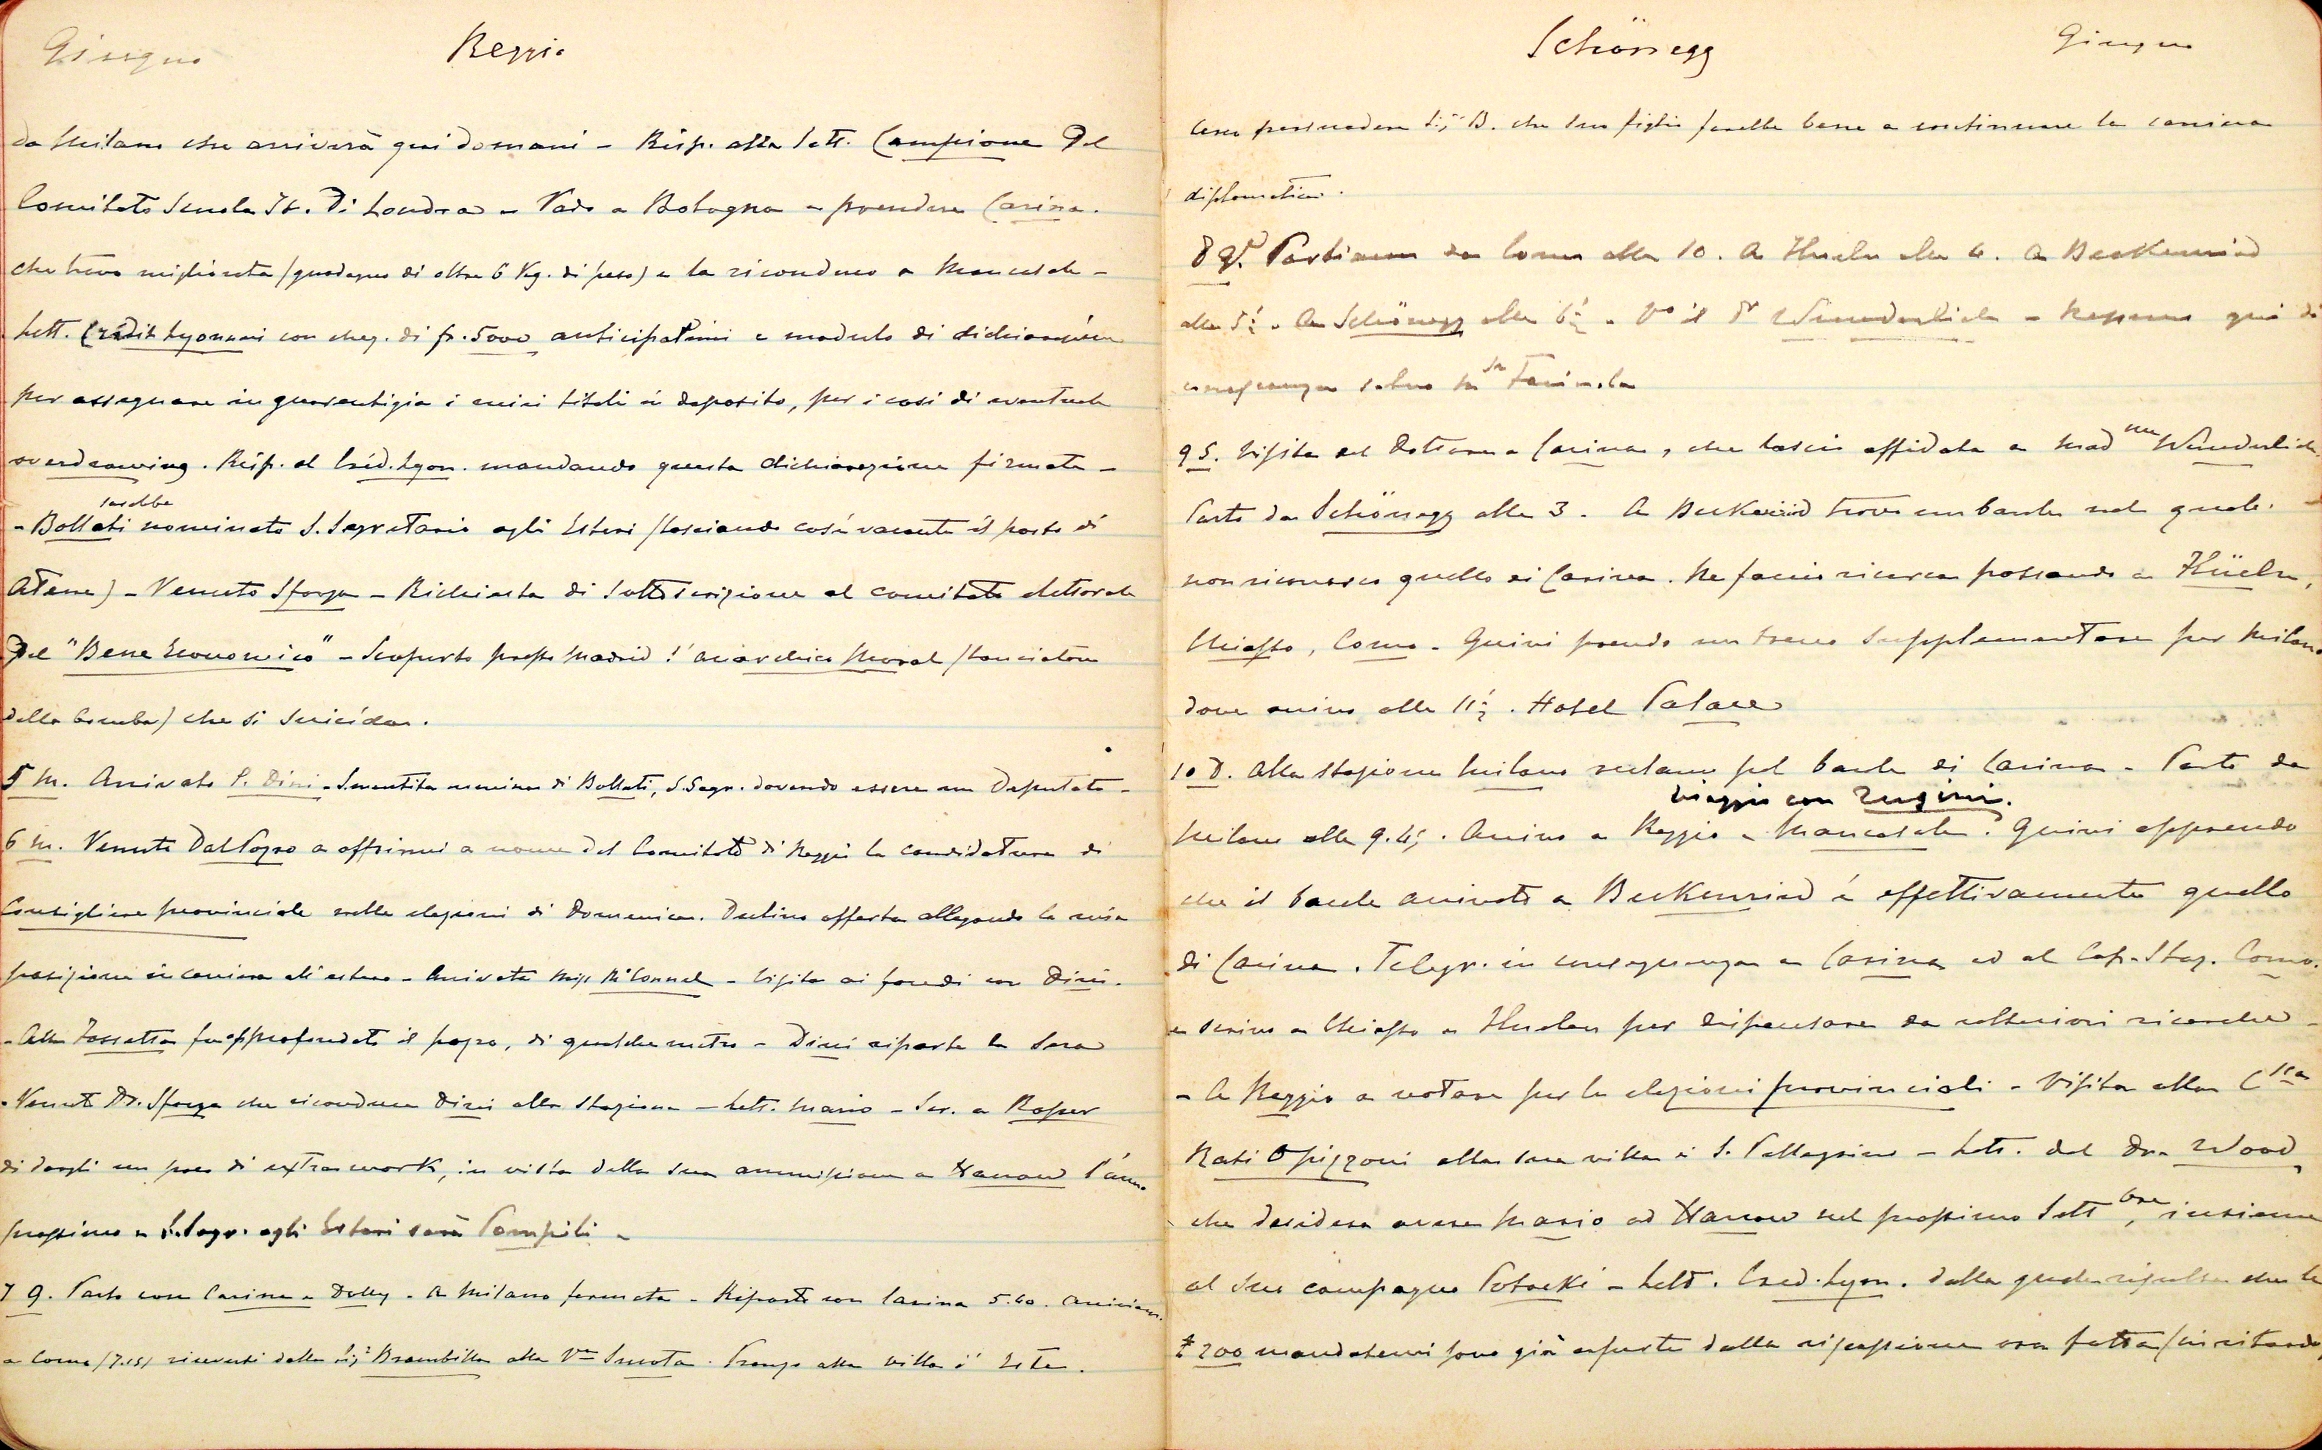 Giugno
Reggio
da Milano che arriverà qui domani - Risp. alla lett. Campione del
Comitato Scuola It. di Londra - Vado a Bologna a prendere Carina.
che trovo migliorata (guadagno di oltre 6 Kg. di peso) e la riconduco a Mancasale -
Lett. Crédit Lyonnais con cheq. di fr. 5000 anticipatimi e modulo di dichiarazione
per assegnare in guarentigia i miei titoli in deposito, per i casi di eventuale
overdrawing. Risp. al Créd. Lyon. mandando questa dichiarazione firmata -
sarebbe
- Bollati nominato S. Segretario agli Esteri (lasciando così vacante il posto di
Atene) - Venuto Sforza - Richiesta di sottoscrizione al comitato elettorale
del "Bene Economico" - Scoperto presso Madrid l'anarchico Moral (lanciatore
della bomba) che si suicida.
5 M. Arrivato P. Dini - Smentita nomina di Bollati, S. Segr. dovendo essere un Deputato -
6 M. Venuto Dal Pozzo a offrirmi a nome del Comitato di Reggio la candidatura di
Consigliere provinciale nelle elezioni di Domenica. Declino offerta allegando la mia
posizione in carriera all'estero - Arrivata Miss McConnel - Visita ai fondi con Dini.
- Alla Fossetta fu approfondato il pozzo, di qualche metro - Dini riparte la sera
- Venuto Dr. Sforza che riconduce Dini alla stazione - Lett. Mario - Scr. a Roper
di dargli un poco di extra work, in vista della sua ammissione a Harrow l'anno
prossimo - S. Segr. agli Esteri sarà Pompilj -
7 G. Parto con Carina e Dolly - A Milano fermata - Riparto con Carina 5.40. Arriviamo
a Como (7.15) ricevuti dalla Sig.ra Brambilla alla Va Pranzo alla villa d'Este.
Schönegg
Giugno
Cerco persuadere Sig.ra B. che suo figlio farebbe bene a continuare la carriera
diplomatica.
8 V. Partiamo da Como alle 10. A Flüelen alle 4. A Beckenried
alle 5½. A Schönegg alle 6½. Vo il Dr Wunderlich - Nessuno qui di
conoscenza salvo la Sra
9 S. Visita del Dottore a Carina, che lascio affidata a Madme Wunderlich.
Parto da Schönegg alle 3. A Beckenried trovo un baule nel quale
non riconosco quello di Carina. Ne faccio ricerca passando a Flüelen,
Chiasso, Como. Quivi prendo un treno supplementare per Milano
dove arrivo alle 11½. Hotel Palace
10 D. Alla stazione Milano reclamo pel baule di Carina - Parto da
viaggio con
Milano alle 9.45. Arrivo a Reggio e Mancasale. Quivi apprendo
che il baule arrivato a Beckenried è effettivamente quello
di Carina. Telegr. in conseguenza a Carina ed al Cap. Staz. Como.
e scrivo a Chiasso e Fluelen per dispensare da ulteriori ricerche -
- A Reggio a votare per le elezioni provinciali - Visita alla Cssa
Rati Opizzoni alla sua villa a S. Pellegrino - Lett. del Dr. Wood,
che desidera avere Mario ad Harrow nel prossimo Settbre, insieme
al suo compagno Potocki - Lett. Cred. Lyon. dalla quale risulta che le
£ 200 mandatemi sono già coperte dalla riscossione ora fatta (in ritardo)